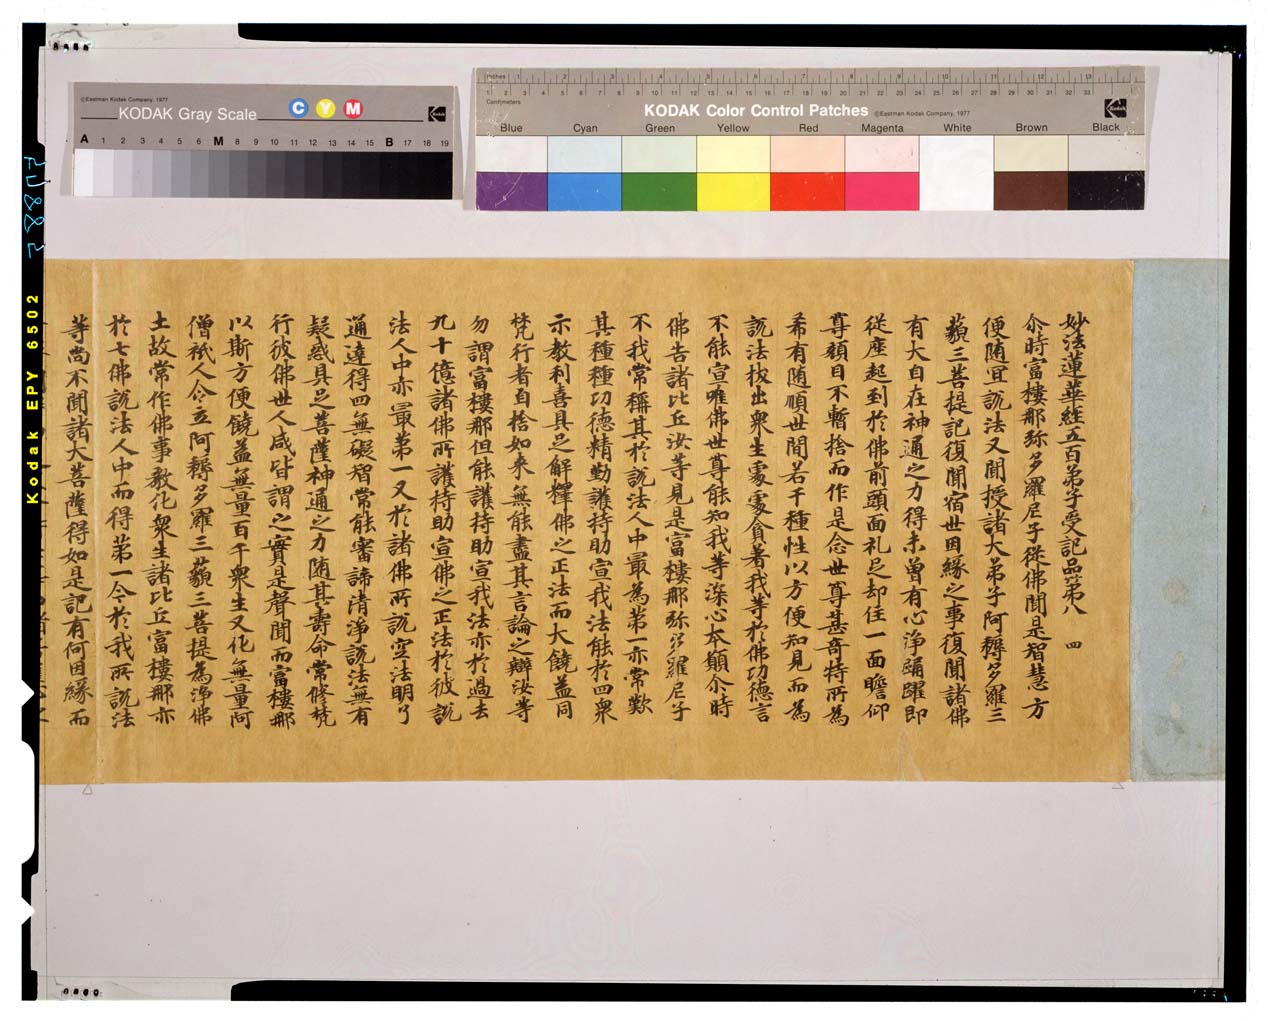 ©Eastman Kodak Company, 1977
KODAK Gray Scale
C Y M
Kodak
A 1 2 3 4 5 6 M 8 9 10 11 12 13 14 15 B 17 18 19
Inches 1 2 3 4 5 6 7 8 9 10 11 12 13
Centimetres 1 2 3 4 5 6 7 8 9 10 11 12 13 14 15 16 17 18 19 20 21 22 23 24 25 26 27 28 29 30 31 32 33
KODAK Color Control Patches ©Eastman Kodak Company, 1977
Kodak
Blue Cyan Green Yellow Red Magenta White Brown Black
Kodak EPY 6502
妙法蓮華經五百弟子受記品第八 四
尒時富樓那弥多羅尼子從佛聞是智慧方
便随冝說法又聞授諸大弟子阿耨多羅三
藐三菩提記復聞宿世因緣之事復聞諸佛
有大自在神通之力得未曾有心淨踊躍即
從座起到於佛前頭面礼足却住一面瞻仰
尊顏目不暫捨而作是念世尊甚奇特所為
希有随順世間若干種性以方便知見而為
說法拔出衆生處處貪著我等於佛功德言
不能宣唯佛世尊能知我等深心本願尒時
佛告諸比丘汝等見是富樓那弥多羅尼子
不我常稱其於說法人中最為第一亦常歎
其種種功德精勤護持助宣我法能於四衆
示教利喜具足解釋佛之正法而大饒益同
梵行者自捨如来無能盡其言論之辯汝等
勿謂富樓那但能護持助宣我法亦於過去
九十億諸佛所護持助宣佛之正法於彼說
法人中亦最第一又於諸佛所說空法明了
通達得四無礙智常能審諦清淨說法無有
疑惑具足菩薩神通之力随其壽命常修梵
行彼佛世人咸皆謂之實是聲聞而富樓那
以斯方便饒益無量百千衆生又化無量阿
僧祇人令立阿耨多羅三藐三菩提為淨佛
土故常作佛事教化衆生諸比丘富樓那亦
於七佛說法人中而得第一今於我所說法
等尚不聞諸大菩薩得如是記有何因緣而